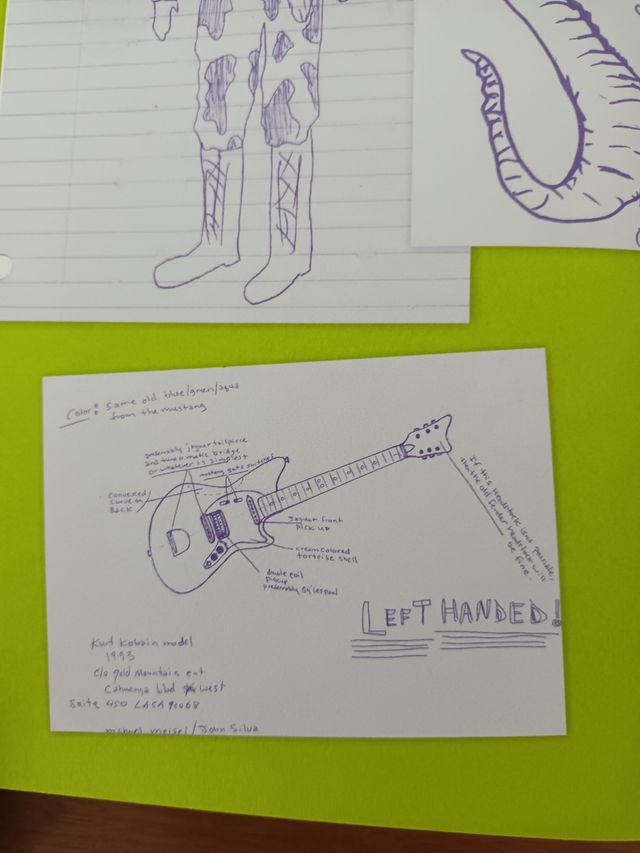 Color: Same old blue/green/aqua
from the mustang
preferably jaguar tailpiece
and tune o matic bridge
or whatever is simplest
mustang gate switches
Convexed
Curve on
Back
Jaguar front
Pick up
cream colored
tortoise shell
double coil
pickup
preferably
If this Headstock isnt possible,
then the old fender headstock will
be fine
LEFT HANDED!
Kurt Kobain model
1993
c/o gold Mountain ent
Cahuenga blvd west
Suite 450 LA CA 90068
michael meisel/John Silva